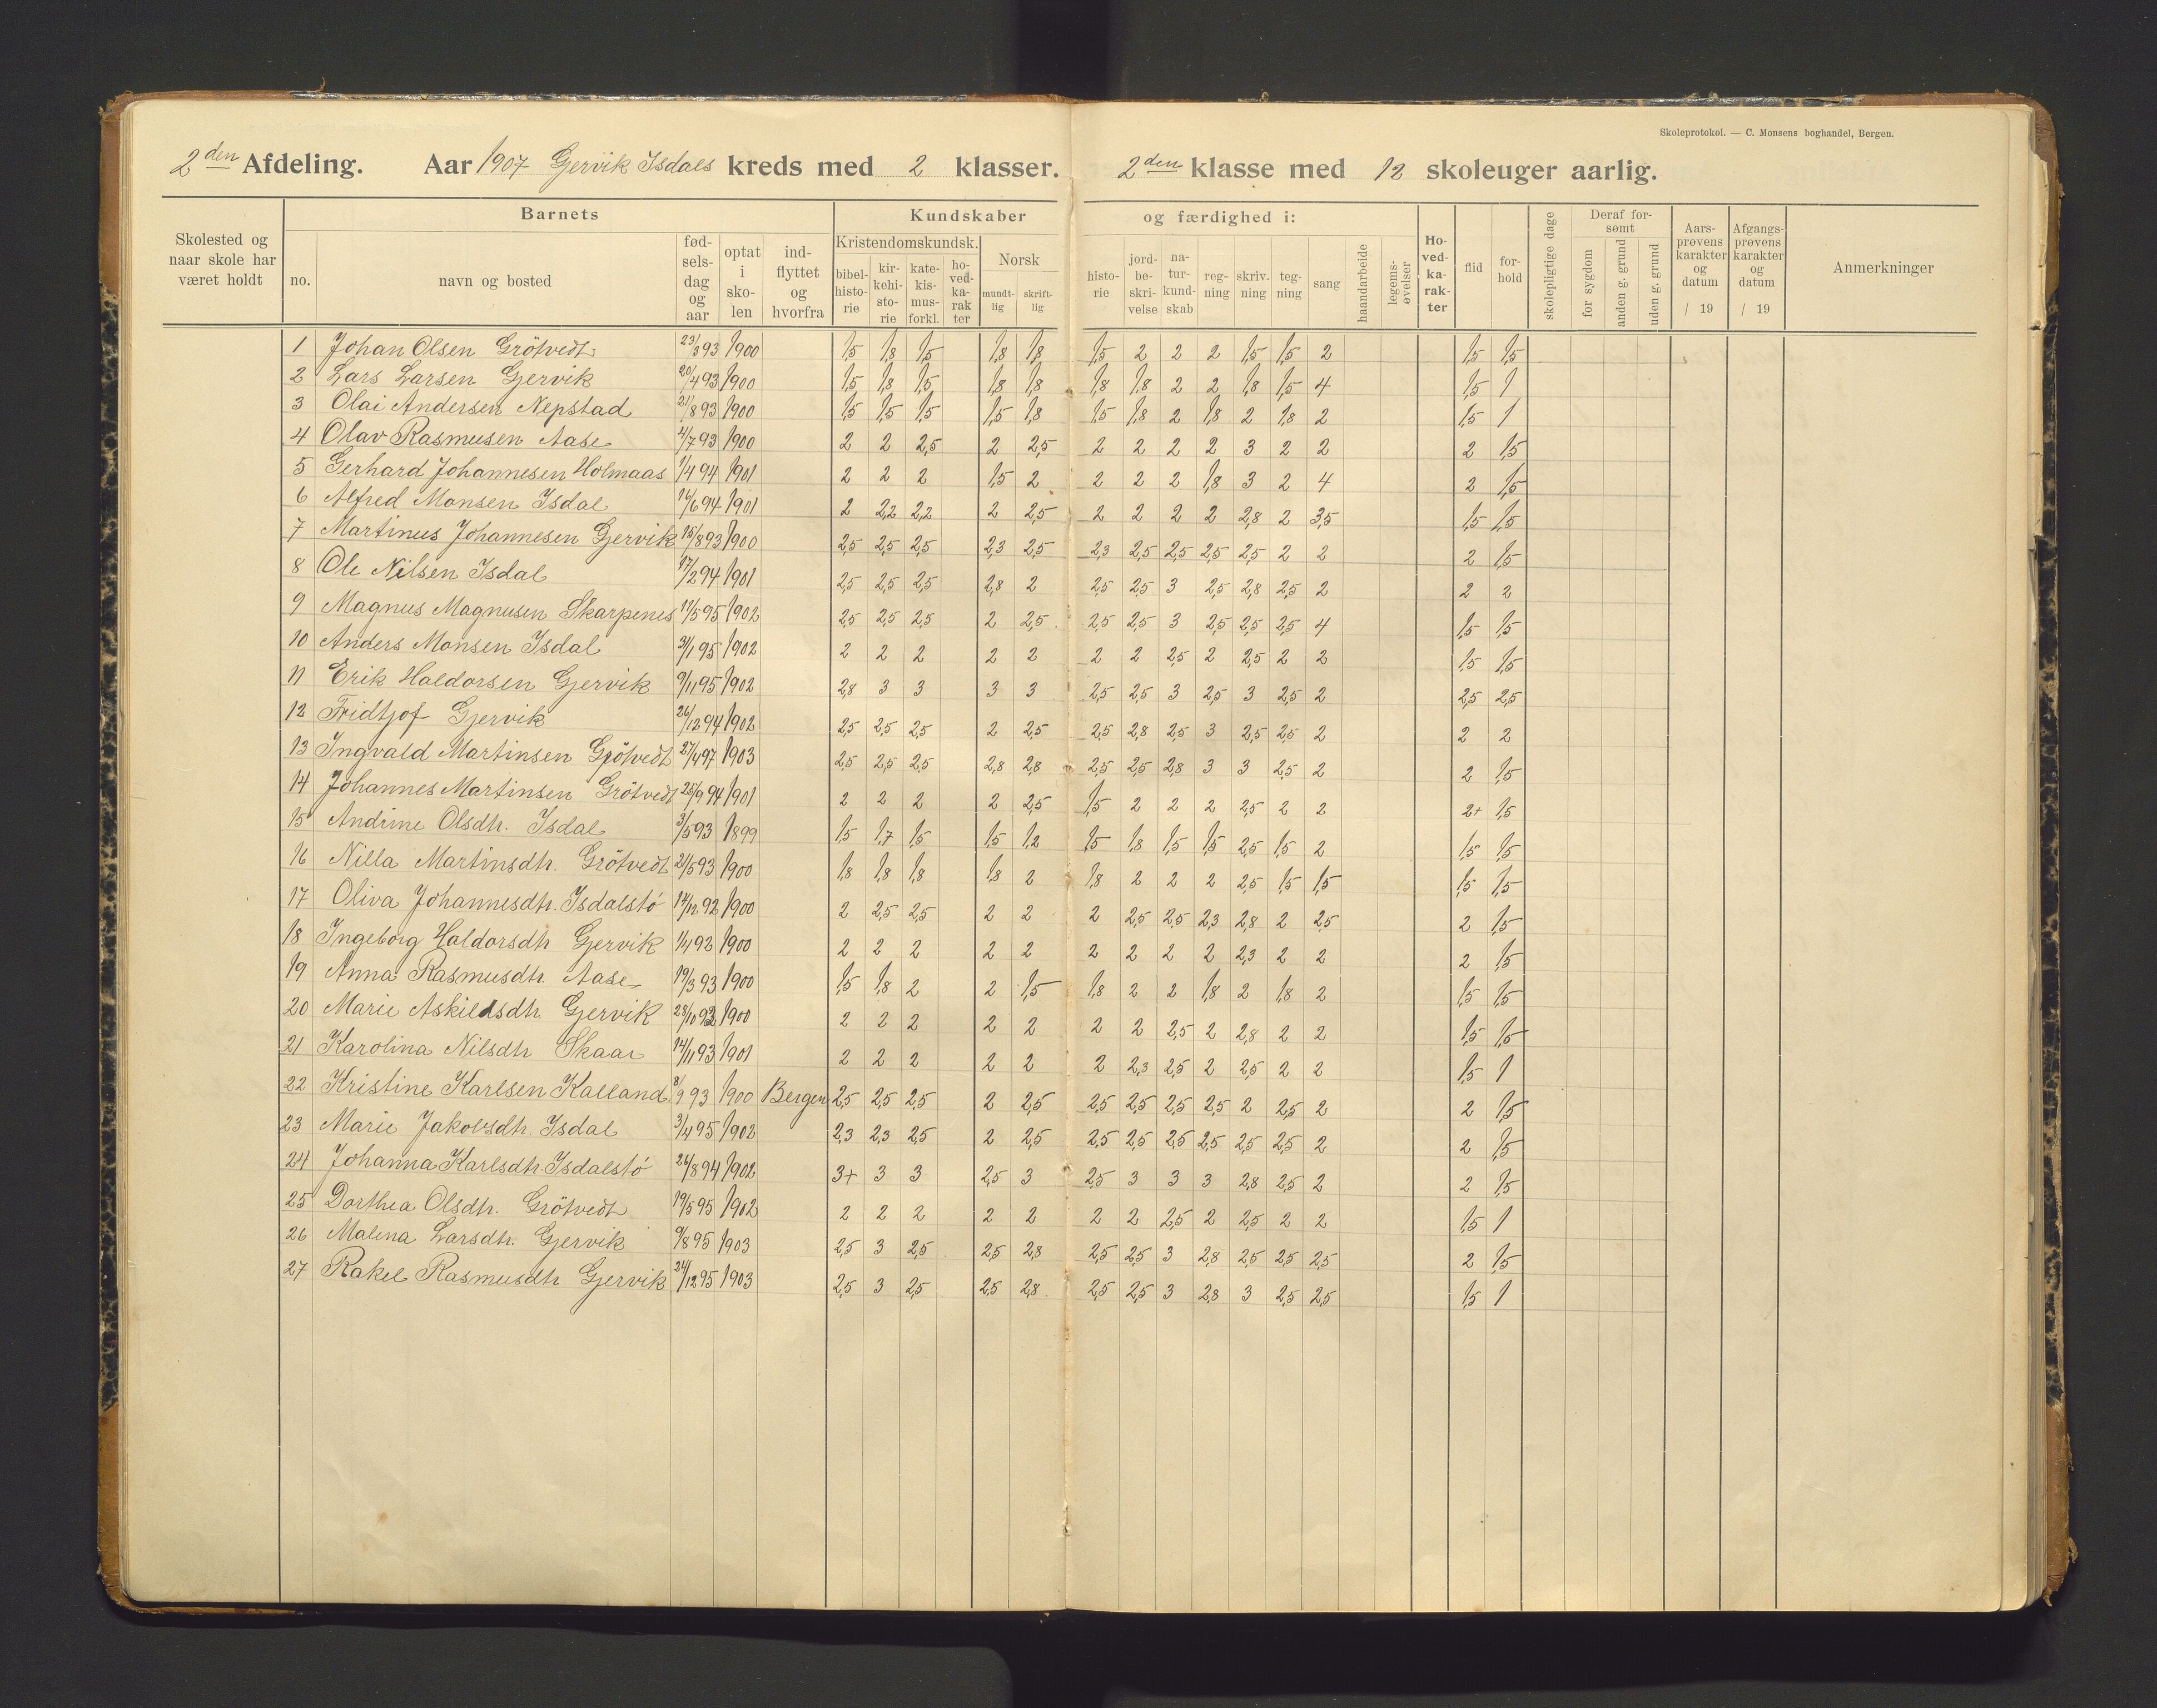 Skoleprotokol. — C. Monsens boghandel, Bergen.
2den Afdeling. Aar 1907 Gjervik Isdals kreds med 2 klasser. 2den klasse med 12 skoleuger aarlig.
Skolested og naar skole har været holdt
Barnets
no. navn og bosted fødselsdag og aar optat i skolen indflyttet og hvorfra
Kundskaber og færdighed i:
Kristendomskundsk. bibelhistorie kirkehistorie katekismus forkl. hovedkarakter
Norsk mundtlig skriftlig
historie jordbeskrivelse naturkundskab regning skrivning tegning sang haandarbeide legemsøvelser
Hovedkarakter flid forhold skolepligtige dage
Deraf forsømt for sygdom anden g. grund uden g. grund
Aarsprøvens karakter og datum / 19
Afgangsprøvens karakter og datum / 19
Anmerkninger
1 Johan Olsen Grötvedt 23/3 93 1900 1,5 1,8 1,5 1,8 1,8 1,5 2 2 2 1,5 1,5 2 1,5 1,5
2 Lars Larsen Gjervik 20/4 93 1900 1,5 1,8 1,5 1,8 1,8 1,8 1,8 2 2 1,8 1,5 4 1,5 1
3 Olai Andersen Nepstad 21/8 93 1900 1,5 1,5 1,5 1,5 1,8 1,5 1,8 2 1,8 2 1,8 2 1,5 1
4 Olav Rasmusen Aase 4/7 93 1900 2 2 2,5 2 2,5 2 2 2 2 3 2 2 2 1,5
5 Gerhard Johannesen Holmaas 1/4 94 1901 2 2 2 1,5 2 2 2 2 1,8 3 2 4 2 1,5
6 Alfred Monsen Isdal 16/6 94 1901 2 2,2 2,2 2 2,5 2 2 2 2 2,8 2 3,5 1,5 1,5
7 Martinus Johannesen Gjervik 15/8 93 1900 2,5 2,5 2,5 2,3 2,5 2,3 2,5 2,5 2,5 2,5 2 2 2 1,5
8 Ole Nilsen Isdal 17/2 94 1901 2,5 2,5 2,5 2,8 2 2,5 2,5 3 2,5 2,8 2,5 2 2 2
9 Magnus Magnusen Skarpenes 19/5 95 1902 2,5 2,5 2,5 2 2,5 2,5 2,5 3 2,5 2,5 2,5 4 1,5 1,5
10 Anders Monsen Isdal 31/1 95 1902 2 2 2 2 2 2 2 2,5 2 2,5 2 2 1,5 1,5
11 Erik Haldorsen Gjervik 9/11 95 1902 2,8 3 3 3 3 2,5 2,5 3 2,5 3 2,5 2 2,5 2,5
12 Fridtjof Gjervik 26/12 94 1902 2,5 2,5 2,5 2 2,5 2,5 2,8 2,5 3 2,5 2,5 2 2 2
13 Ingvald Martinsen Grötvedt 27/4 97 1903 2,5 2,5 2,5 2,8 2,8 2,5 2,5 2,8 3 3 2,5 2 2 1,5
14 Johannes Martinsen Grötvedt 25/9 94 1901 2 2 2 2 2,5 1,5 2 2 2 2,5 2 2 2+ 1,5
15 Andrine Olsdtr. Isdal 3/5 93 1899 1,5 1,7 1,5 1,5 1,2 1,5 1,8 1,5 1,5 2,5 1,5 2 1,5 1,5
16 Nilla Martinsdtr. Grötvedt 21/5 93 1900 1,8 1,8 1,8 1,8 2 1,8 2 2 2 2,5 1,5 1,5 1,5 1,5
17 Oliva Johannesdtr. Isdalstö 14/12 92 1900 2 2,5 2,5 2 2 2 2,5 2,5 2,3 2,8 2 2,5 2 1,5
18 Ingeborg Haldorsdtr Gjervik 1/4 92 1900 2 2 2 2 2 2 2 2 2 2,3 2 2 2 1,5
19 Anna Rasmusdtr. Aase 19/3 93 1900 1,5 1,8 2 2 1,5 1,8 2 2 1,8 2 1,8 2 1,5 1,5
20 Marie Askildsdtr. Gjervik 28/10 1900 2 2 2 2 2 2 2 2,5 2 2,8 2 2 1,5 1,5
21 Karolina Nilsdtr Skaar 14/11 93 1901 2 2 2 2 2 2 2,3 2,5 2 2,5 2 2 1,5 1
22 Kristine Karlsen Kalland 8/9 93 1900 Bergen 2,5 2,5 2,5 2 2,5 2,5 2,5 2,5 2,5 2 2,5 2 2 1,5
23 Marie Jakobsdtr. Isdal 3/4 95 1902 2,3 2,3 2,5 2 2,5 2,5 2,5 2,5 2,5 2,5 2,5 2 2 1,5
24 Johanna Karlsdtr Isdalstö 24/8 94 1902 3+ 3 3 2,5 3 2,5 3 3 3 2,8 2,5 2 2 1,5
25 Dorthea Olsdtr. Grötvedt 19/5 95 1902 2 2 2 2 2 2 2 2,5 2 2,5 2 2 1,5 1
26 Malena Larsdtr. Gjervik 9/8 95 1903 2,5 3 2,5 2,5 2,8 2,5 2,5 3 2,8 2,5 2,5 2,5 2 1,5
27 Rakel Rasmusdtr Gjervik 24/12 95 1903 2,5 3 2,5 2,5 2,8 2,5 2,5 3 2,8 3 2,5 2,5 1,5 1